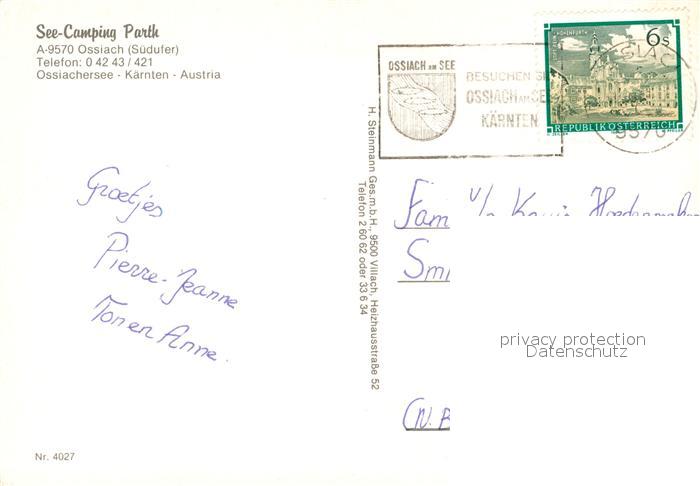 See-Camping Parth
A-9570 Ossiach (Südufer)
Telefon: 0 42 43 / 421
Ossiachersee - Kärnten - Austria
Groetjes
Pierre-Jeanne
Ton en Anne.
Nr. 4027
H. Steinmann Ges.m.b.H., 9500 Villach, Heizhausstraße 52
Telefon 2 60 62 oder 33 6 34
OSSIACH AM SEE
BESUCHEN SI
OSSIACH AM SE
KÄRNTEN
6 S
REPUBLIK ÖSTERREICH
9570
Fam
Smi
(N.B
privacy protection
Datenschutz